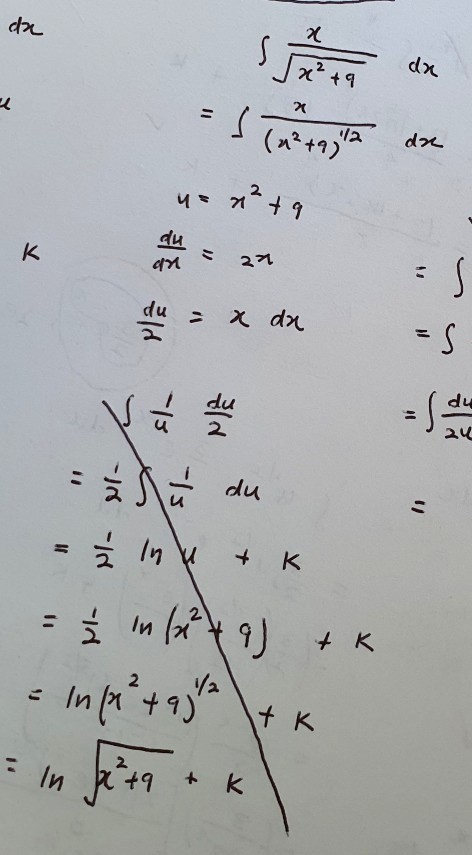 dx
∫ x/√(x²+9) dx
u
= ∫ x/(x²+9)^1/2 dx
u = x² + 9
K
du/dx = 2x
= ∫
du/2 = x dx
= ∫
∫ 1/u du/2
= ∫ du/2u
= 1/2 ∫ 1/u du
=
= 1/2 ln u + K
= 1/2 ln(x² + 9) + K
= ln(x² + 9)^1/2 + K
= ln √(x²+9) + K